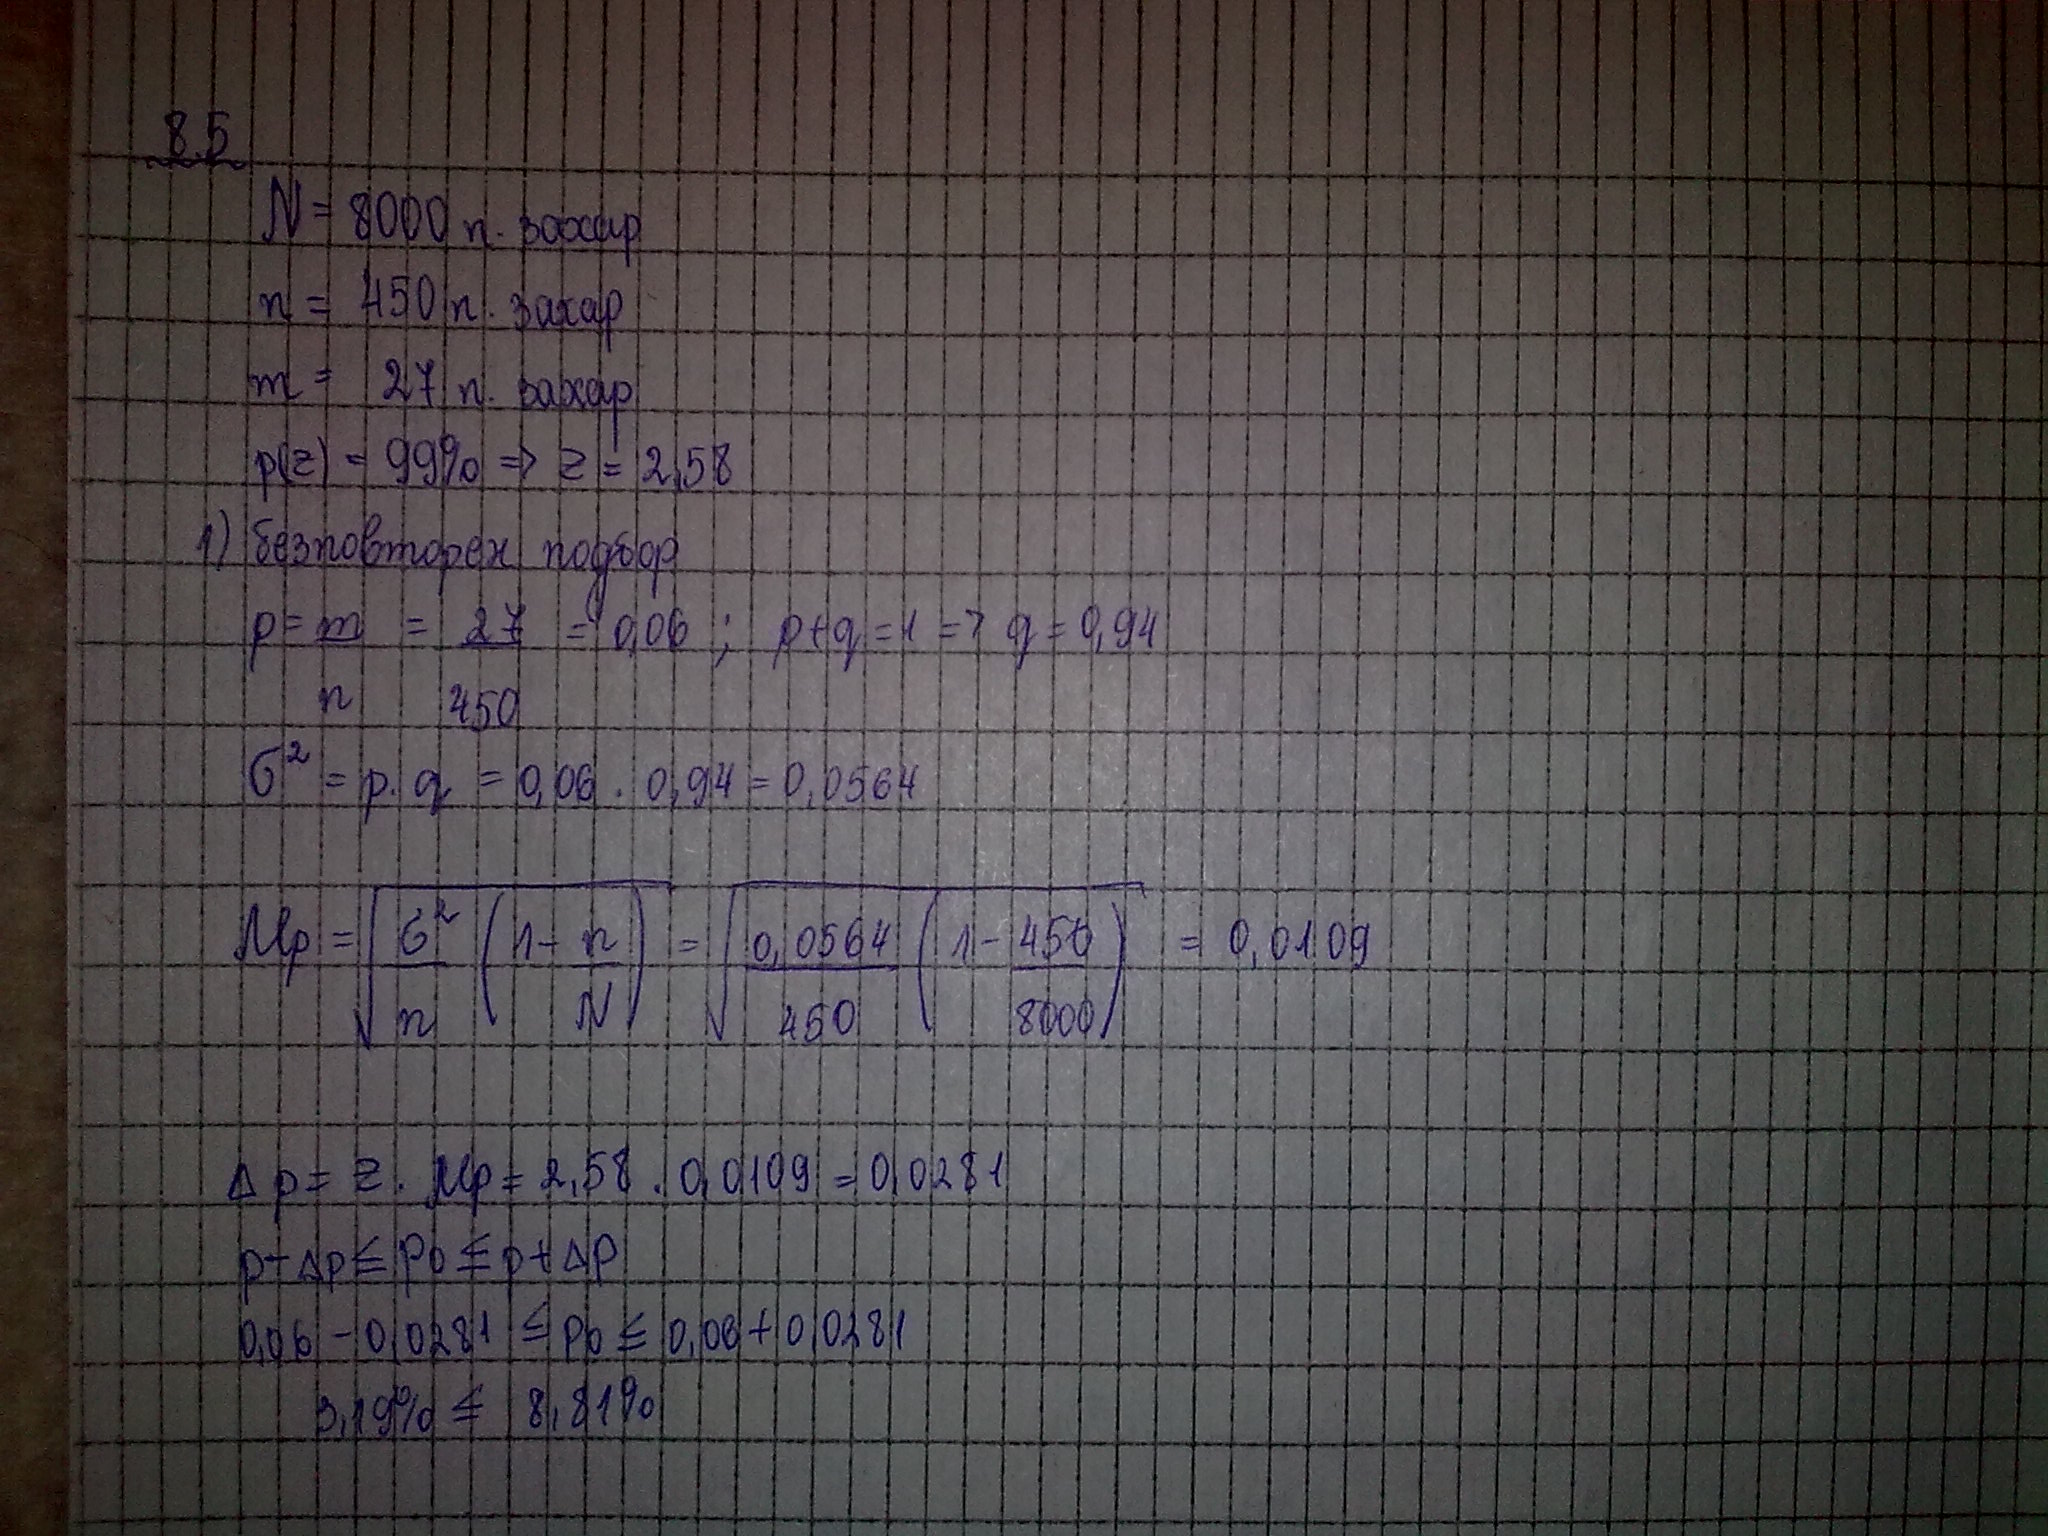 8.5
N = 8000 п. захар
n = 450 п. захар
m = 27 п. захар
p(z) = 99% => z = 2,58
1) безповторен подбор
p = m/n = 27/450 = 0,06 ; p+q = 1 => q = 0,94
σ² = p.q = 0,06 . 0,94 = 0,0564
Mp = √(σ²/n (1 - n/N)) = √(0,0564/450 (1 - 450/8000)) = 0,0109
Δp = z . Mp = 2,58 . 0,0109 = 0,0281
p - Δp ≤ Po ≤ p + Δp
0,06 - 0,0281 ≤ Po ≤ 0,06 + 0,0281
3,19% ≤ 8,81%